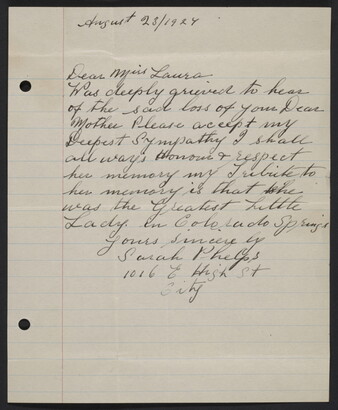 August 23/1924
Dear Miss Laura
Was deeply grieved to hear
of the sad loss of your Dear
Mother Please accept my
Deepest Sympathy I shall
always Honour & respect
her memory my Tribute to
her memory is that she
was the Greatest Little
Lady in Colorado Springs
Yours sincerely
Sarah Phelps
1016 E High St
City